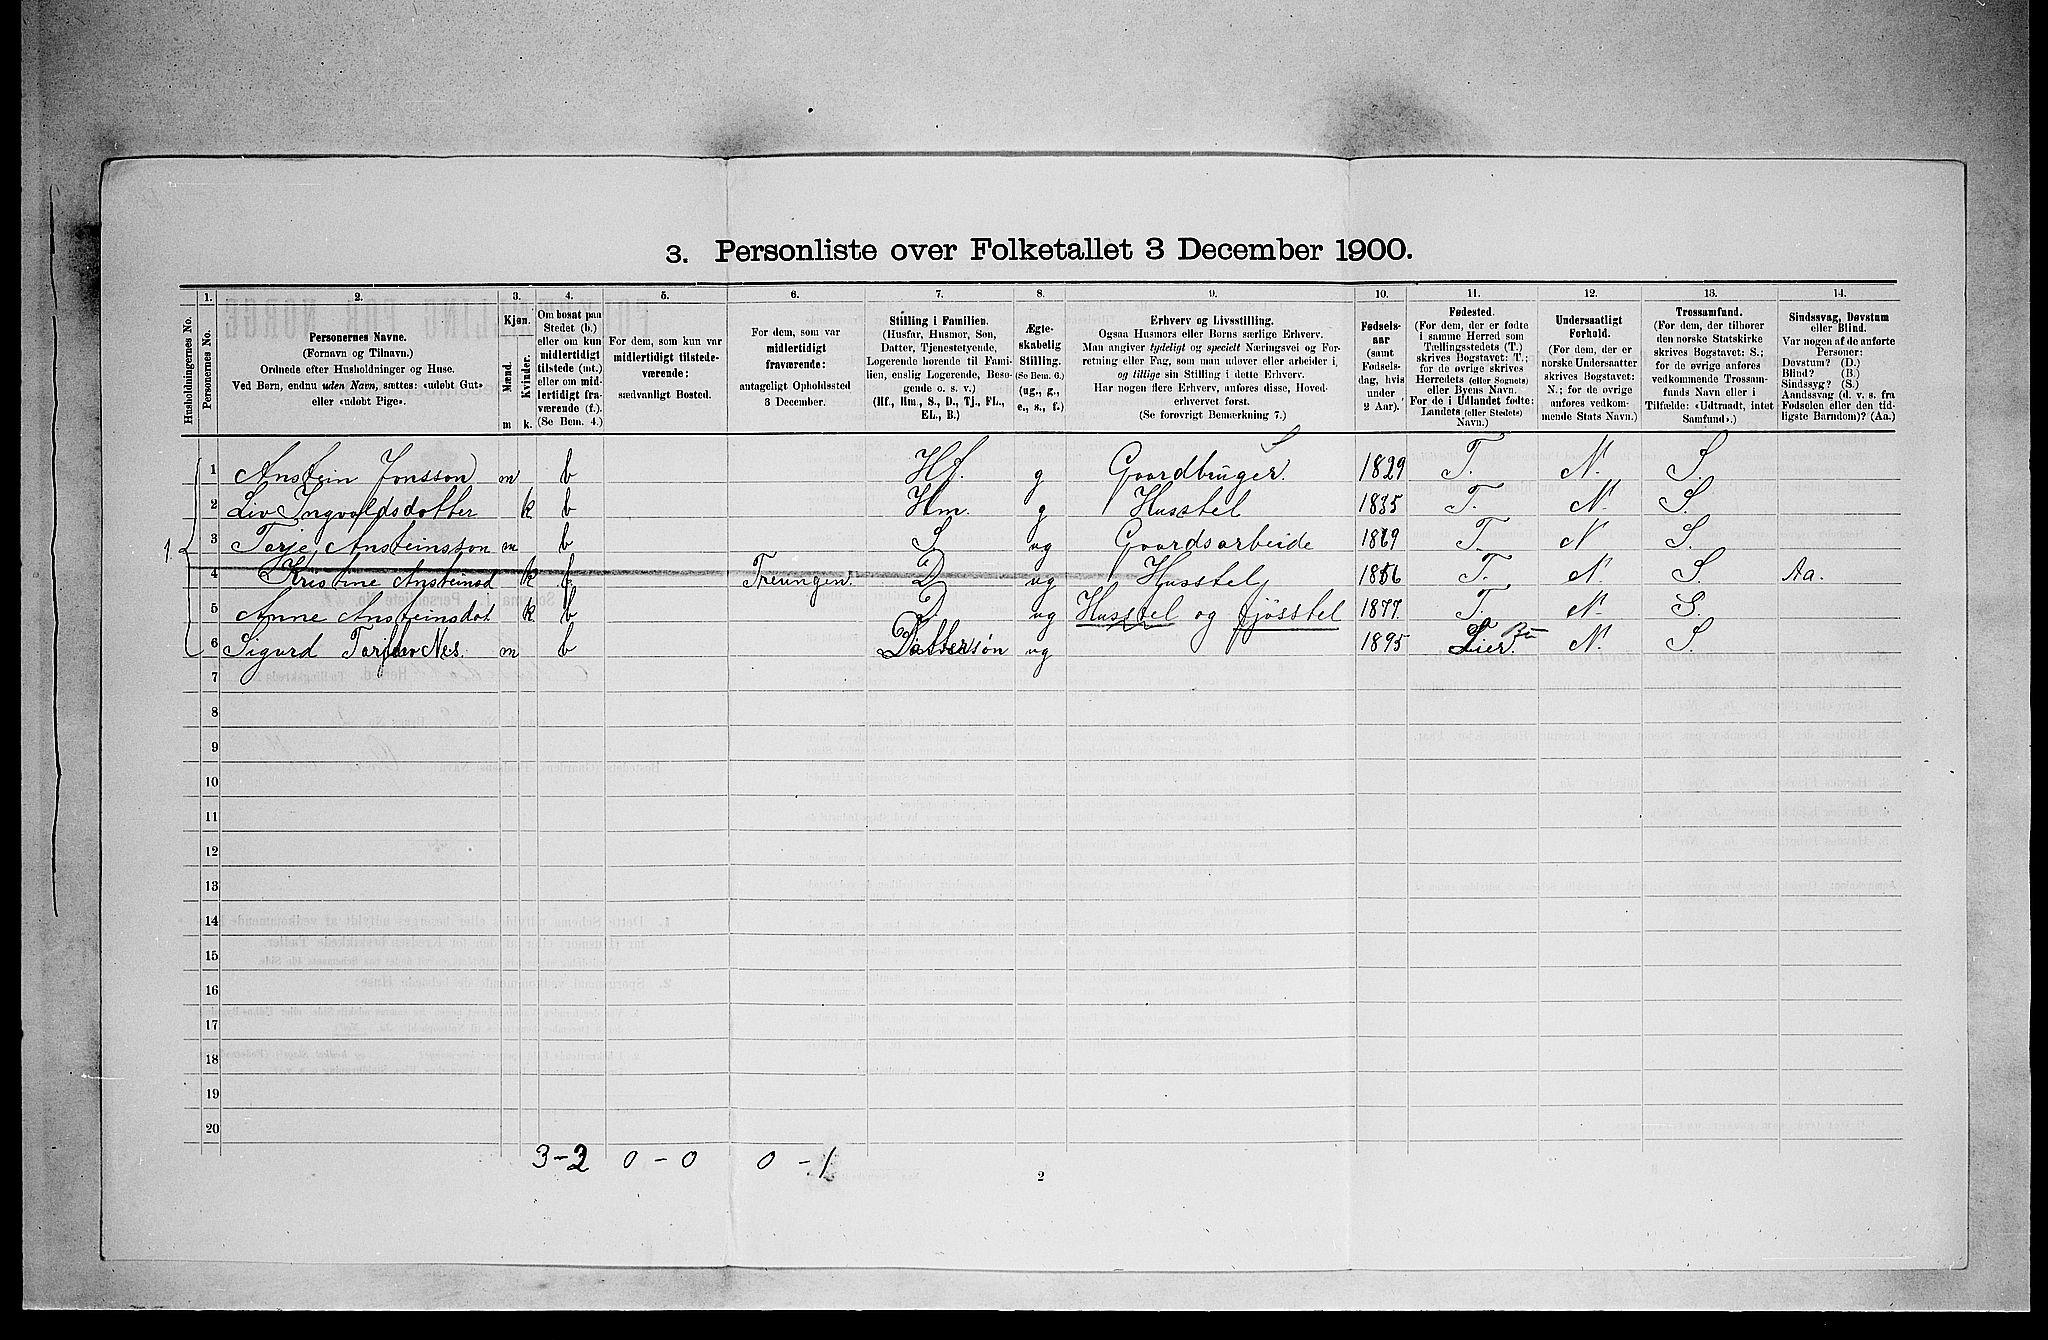 3. Personliste over Folketallet 3 December 1900.
Husholdningernes No.
1. Personernes No.
2. Personernes Navne. (Fornavn og Tilnavn.) Ordnede efter Husholdninger og Huse. Ved Børn, endnu uden Navn, sættes: «udøbt Gut» eller «udøbt Pige».
3. Kjøn. Mænd. m Kvinder. k.
4. Om bosat paa Stedet (b.) eller om kun midlertidigt tilstede (mt.) eller om midlertidigt fraværende (f.). (Se Bem. 4.)
5. For dem, som kun var midlertidigt tilstedeværende: sædvanligt Bosted.
6. For dem, som var midlertidigt fraværende: antageligt Opholdssted 3 December.
7. Stilling i Familien. (Husfar, Husmor, Søn, Datter, Tjenestetyende, Logerende hørende til Familien, enslig Logerende, Besøgende o. s. v.) (Hf., Hm., S., D., Tj., FL., EL., B.)
8. Ægteskabelig Stilling. (Se Bem. 6.) (ug., g., e., s., f.)
9. Erhverv og Livsstilling. Ogsaa Husmors eller Børns særlige Erhverv. Man angiver tydeligt og specielt Næringsvei og Forretning eller Fag, som man udøver eller arbeider i, og tillige sin Stilling i dette Erhverv. Har nogen flere Erhverv, anføres disse, Hovederhvervet først. (Se forøvrigt Bemærkning 7.)
10. Fødselsaar (samt Fødselsdag, hvis under 2 Aar).
11. Fødested. (For dem, der er fødte i samme Herred som Tællingsstedets (T.) skrives Bogstavet: T.; for de øvrige skrives Herredets (eller Sognets) eller Byens Navn. For de i Udlandet fødte: Landets (eller Stedets) Navn.)
12. Undersaatligt Forhold. (For dem, der er norske Undersaatter skrives Bogstavet: N.; for de øvrige anføres vedkommende Stats Navn.)
13. Trossamfund. (For dem, der tilhører den norske Statskirke skrives Bogstavet: S.; for de øvrige anføres vedkommende Trossamfunds Navn eller i Tilfælde: «Udtraadt, intet Samfund».)
14. Sindssvag, Døvstum eller Blind. Var nogen af de anførte Personer: Døvstum? (D.) Blind? (B.) Sindssyg? (S.) Aandssvag (d. v. s. fra Fødselen eller den tidligste Barndom)? (Aa.)
1
1 Anstein Jonsson m b Hf. g Gaardbruger. 1829 T. N. S.
2 Liv Ingvaldsdotter k b Hm. g Husstel 1835 T. N. S.
3 Tarje Ansteinsson m b S. ug Gaardsarbeide 1869 T. N S.
4 Kristine Ansteinsd k f Treungen. D ug Husstel 1856 T. N. S. Aa.
5 Anne Ansteinsdot. k b D. ug Husstel og fjösstel 1877. T. N. S.
6 Sigurd Nes. m b Dattersøn ug 1895 Lier. Bu N. S.
7
8
9
10
11
12
13
14
15
16
17
18
19
20
3-2 0-0 0-1
2